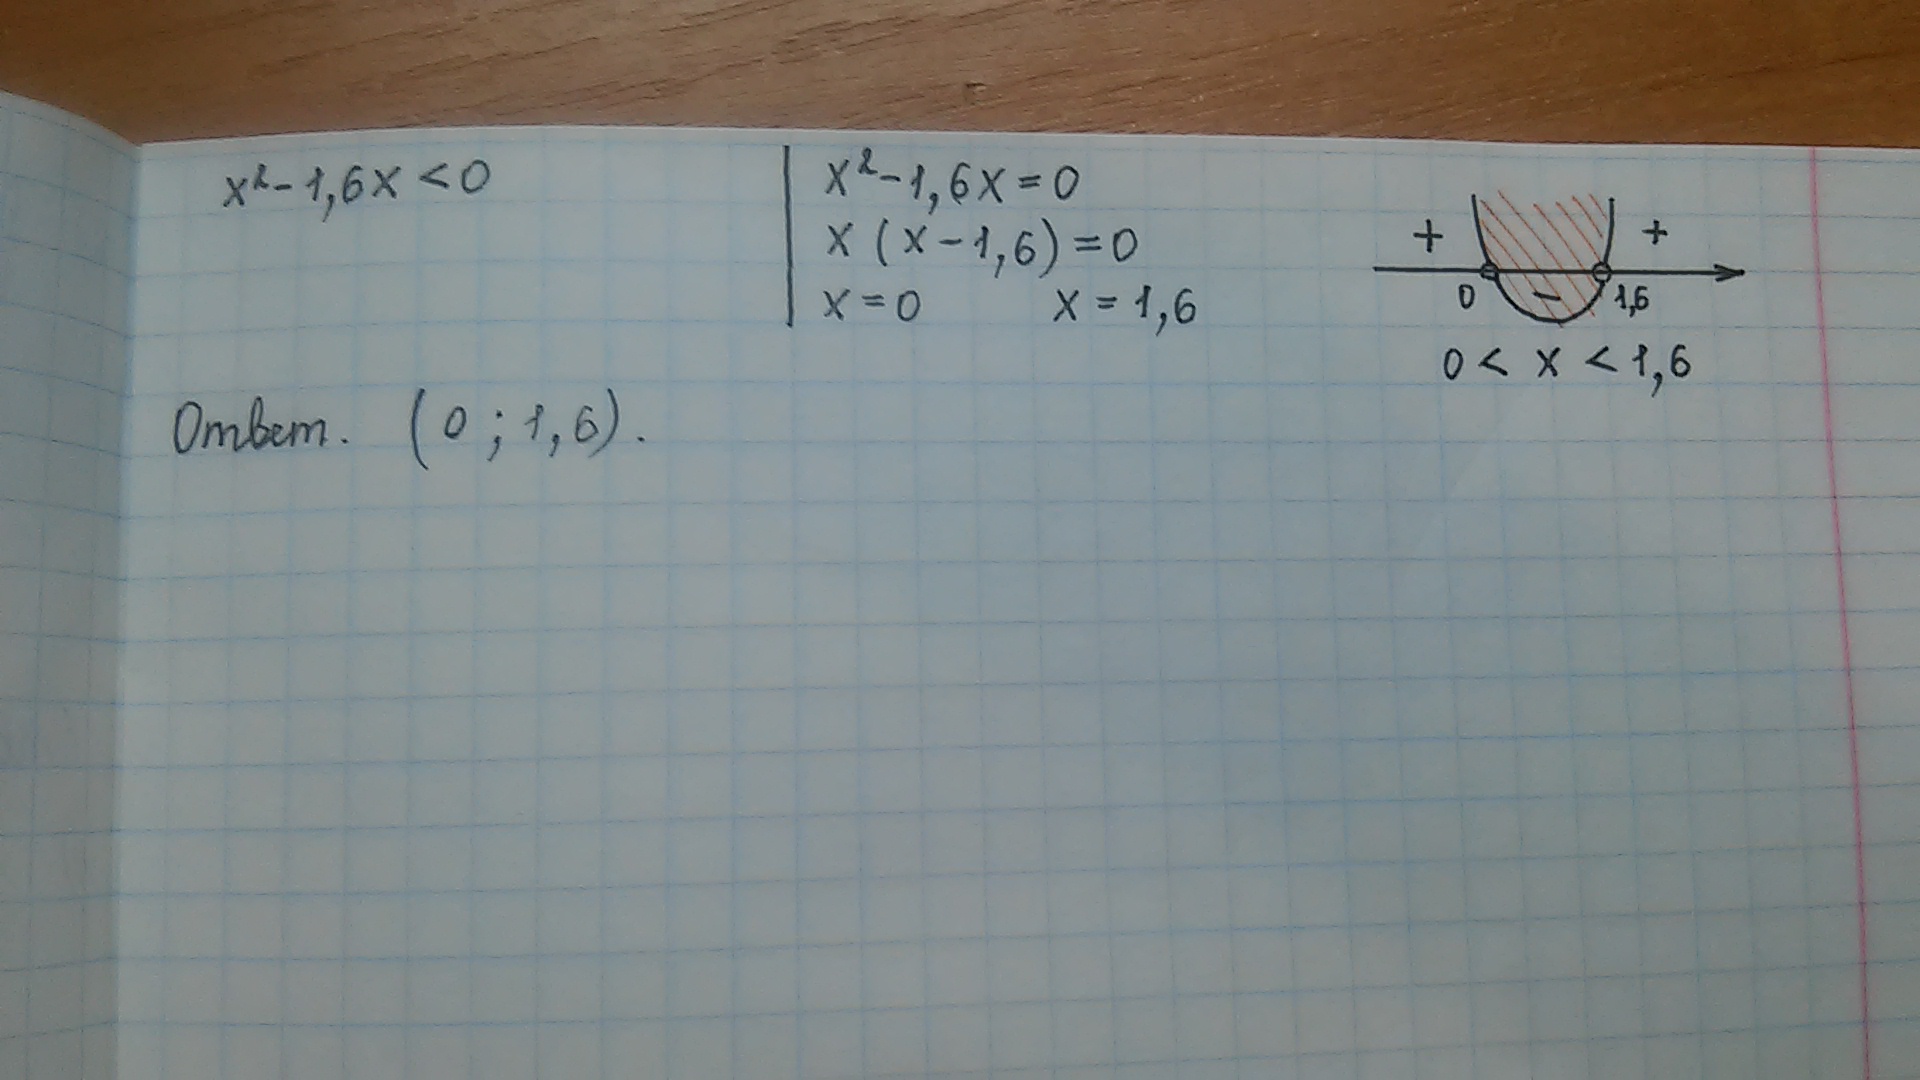 x²-1,6x<0
x²-1,6x=0
x(x-1,6)=0
x=0 x=1,6
+ - +
0 1,6
0<x<1,6
Ответ. (0;1,6).